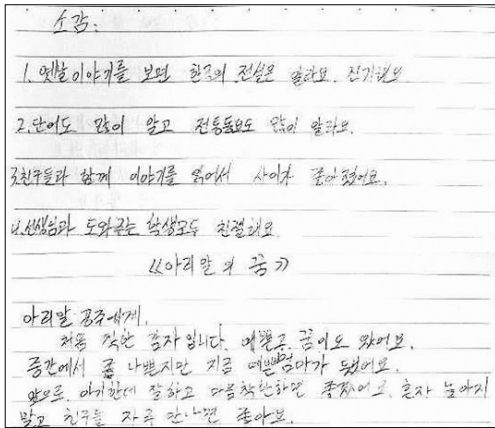 소감:
1. 옛날이야기를 보면 한국의 전설은 알라요. 신기해요
2. 단어도 많이 알고 전통동요도 많이 알라요.
3. 친구들과 함께 이야기를 읽어서 사이가 좋아졌어요.
4. 선생님과 도와주는 학생모두 친절해요
《아리말의 꿈》
아리말 공주에게.
저음 착한 입니다. 예쁜 꿈이도 있어요.
중간에서 좀 나쁜지만 지금 예쁜엄마가 됐어요.
앞으로, 아기한데 잘하고 마음착한하면 좋겠어요. 혼자 놀아지
말고 친구들 자주 만나면 좋아요.